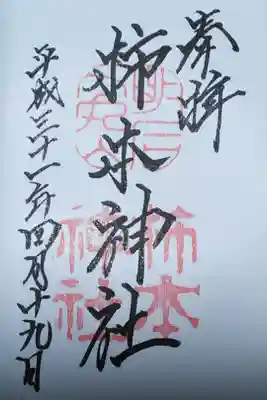 奉拝
柿本神社
平成三十一年四月十九日
柿本
神社